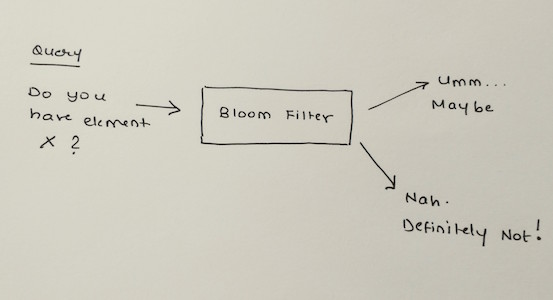 Query
Do you
have element
X ?
Bloom Filter
Umm...
Maybe
Nah.
Definitely Not!